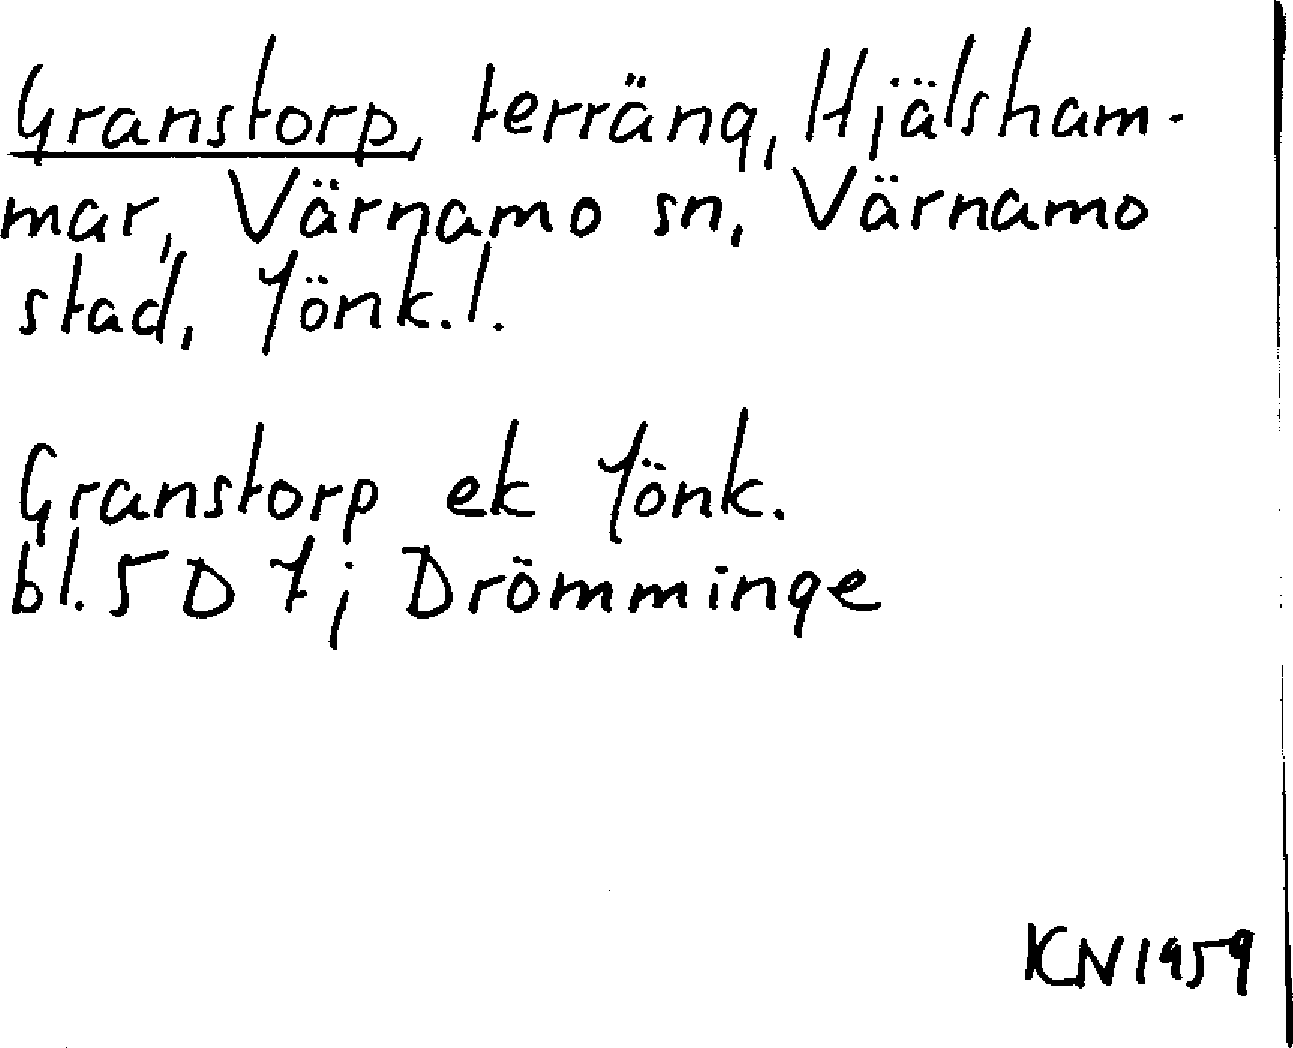 Granstorp, terräng, Hjälsham-
mar, Värnamo sn, Värnamo
stad, Jönk.l.
Granstorp ek Jönk.
bl. 5 D 7; Drömminge
KN 1959